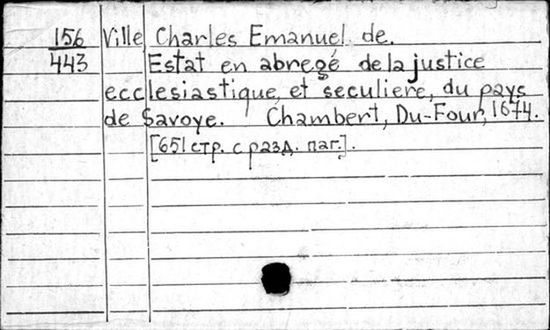 156 Ville, Charles Emanuel de.
443 Estat en abregé de la justice
ecclesiastique, et seculiere, du pays
de Savoye. Chambert, Du-Four, 1674.
[651 стр. с разд. паг.].